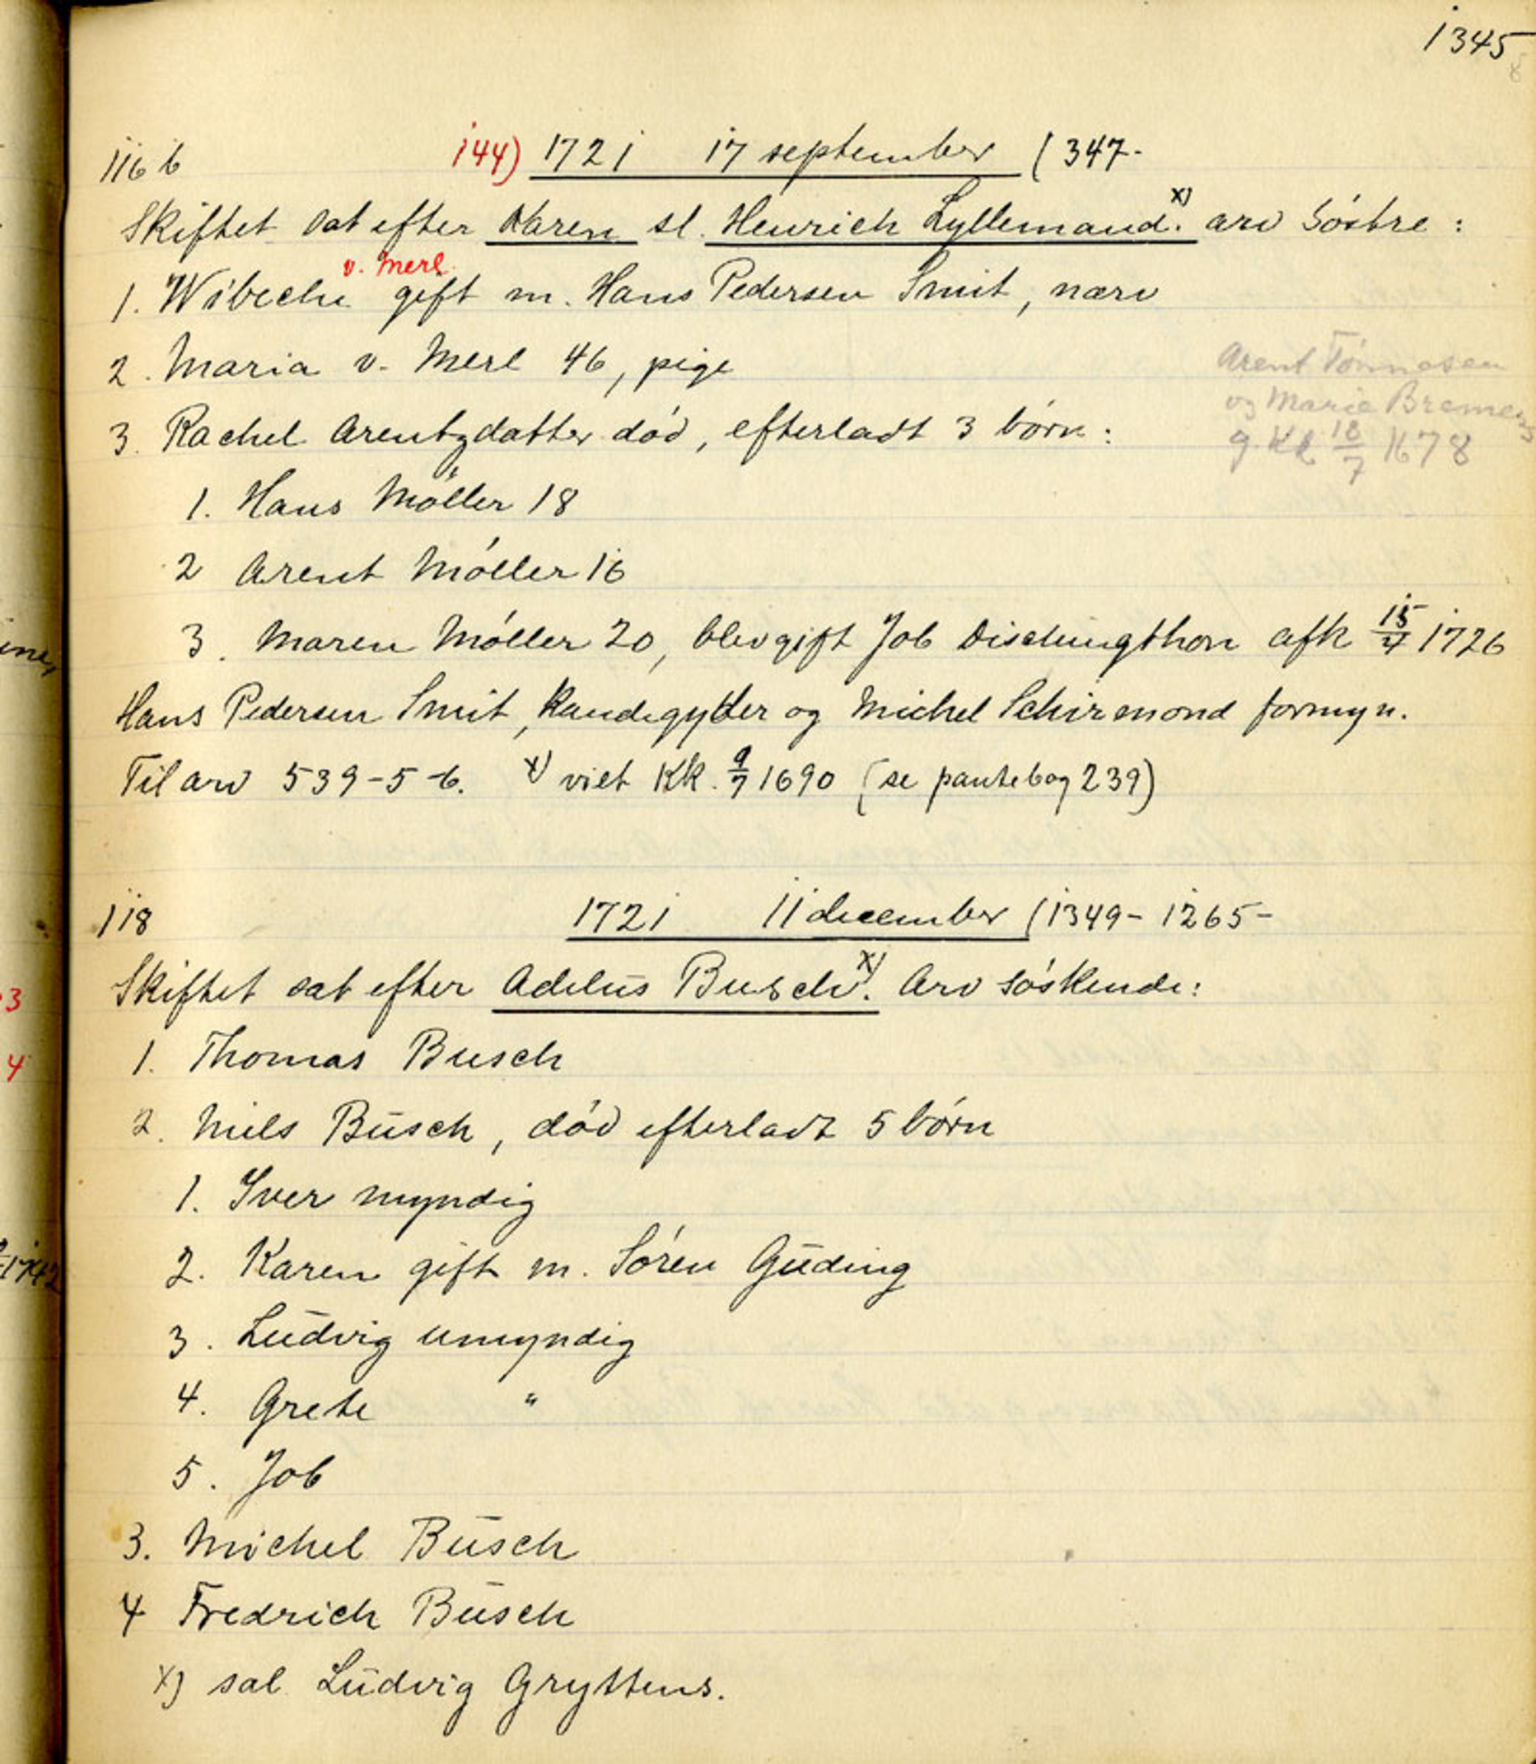 1345
116 b 144) 1721 17 september (347-
Skiftet sat efter Karen sl. Henrich Lyllemand. x) arv Søstre:
v. Merl
1. Wibeche gift m. Hans Pedersen Smit, nærv
2. Maria v. Merl 46, pige
3. Rachel Arentzdatter død, efterladt 3 børn:
Arent Tønnesen
og Marie Bremers
g. Kk 18/7 1678
1. Hans Møller 18
2 Arent Møller 16
3. Maren Møller 20, blev gift Job Dischingthon afk 15/4 1726
Hans Pedersen Smit, Kandegytter og Michel Schirmond formyn.
Til arv 539-5-6. x) viet Kk. 9/7 1690 (se pantebog 239)
118 1721 11 december (1349- 1265-
Skiftet sat efter Adelus Busch x). Arv søskende:
1. Thomas Busch
2. Niels Busch, død efterladt 5 børn
1. Iver myndig
2. Karen gift m. Søren Guding
3. Ludvig umyndig
4. Grete "
5. Job
3. Michel Busch
4 Fredrich Busch
x) sal Ludvig Gryttens.
3
4